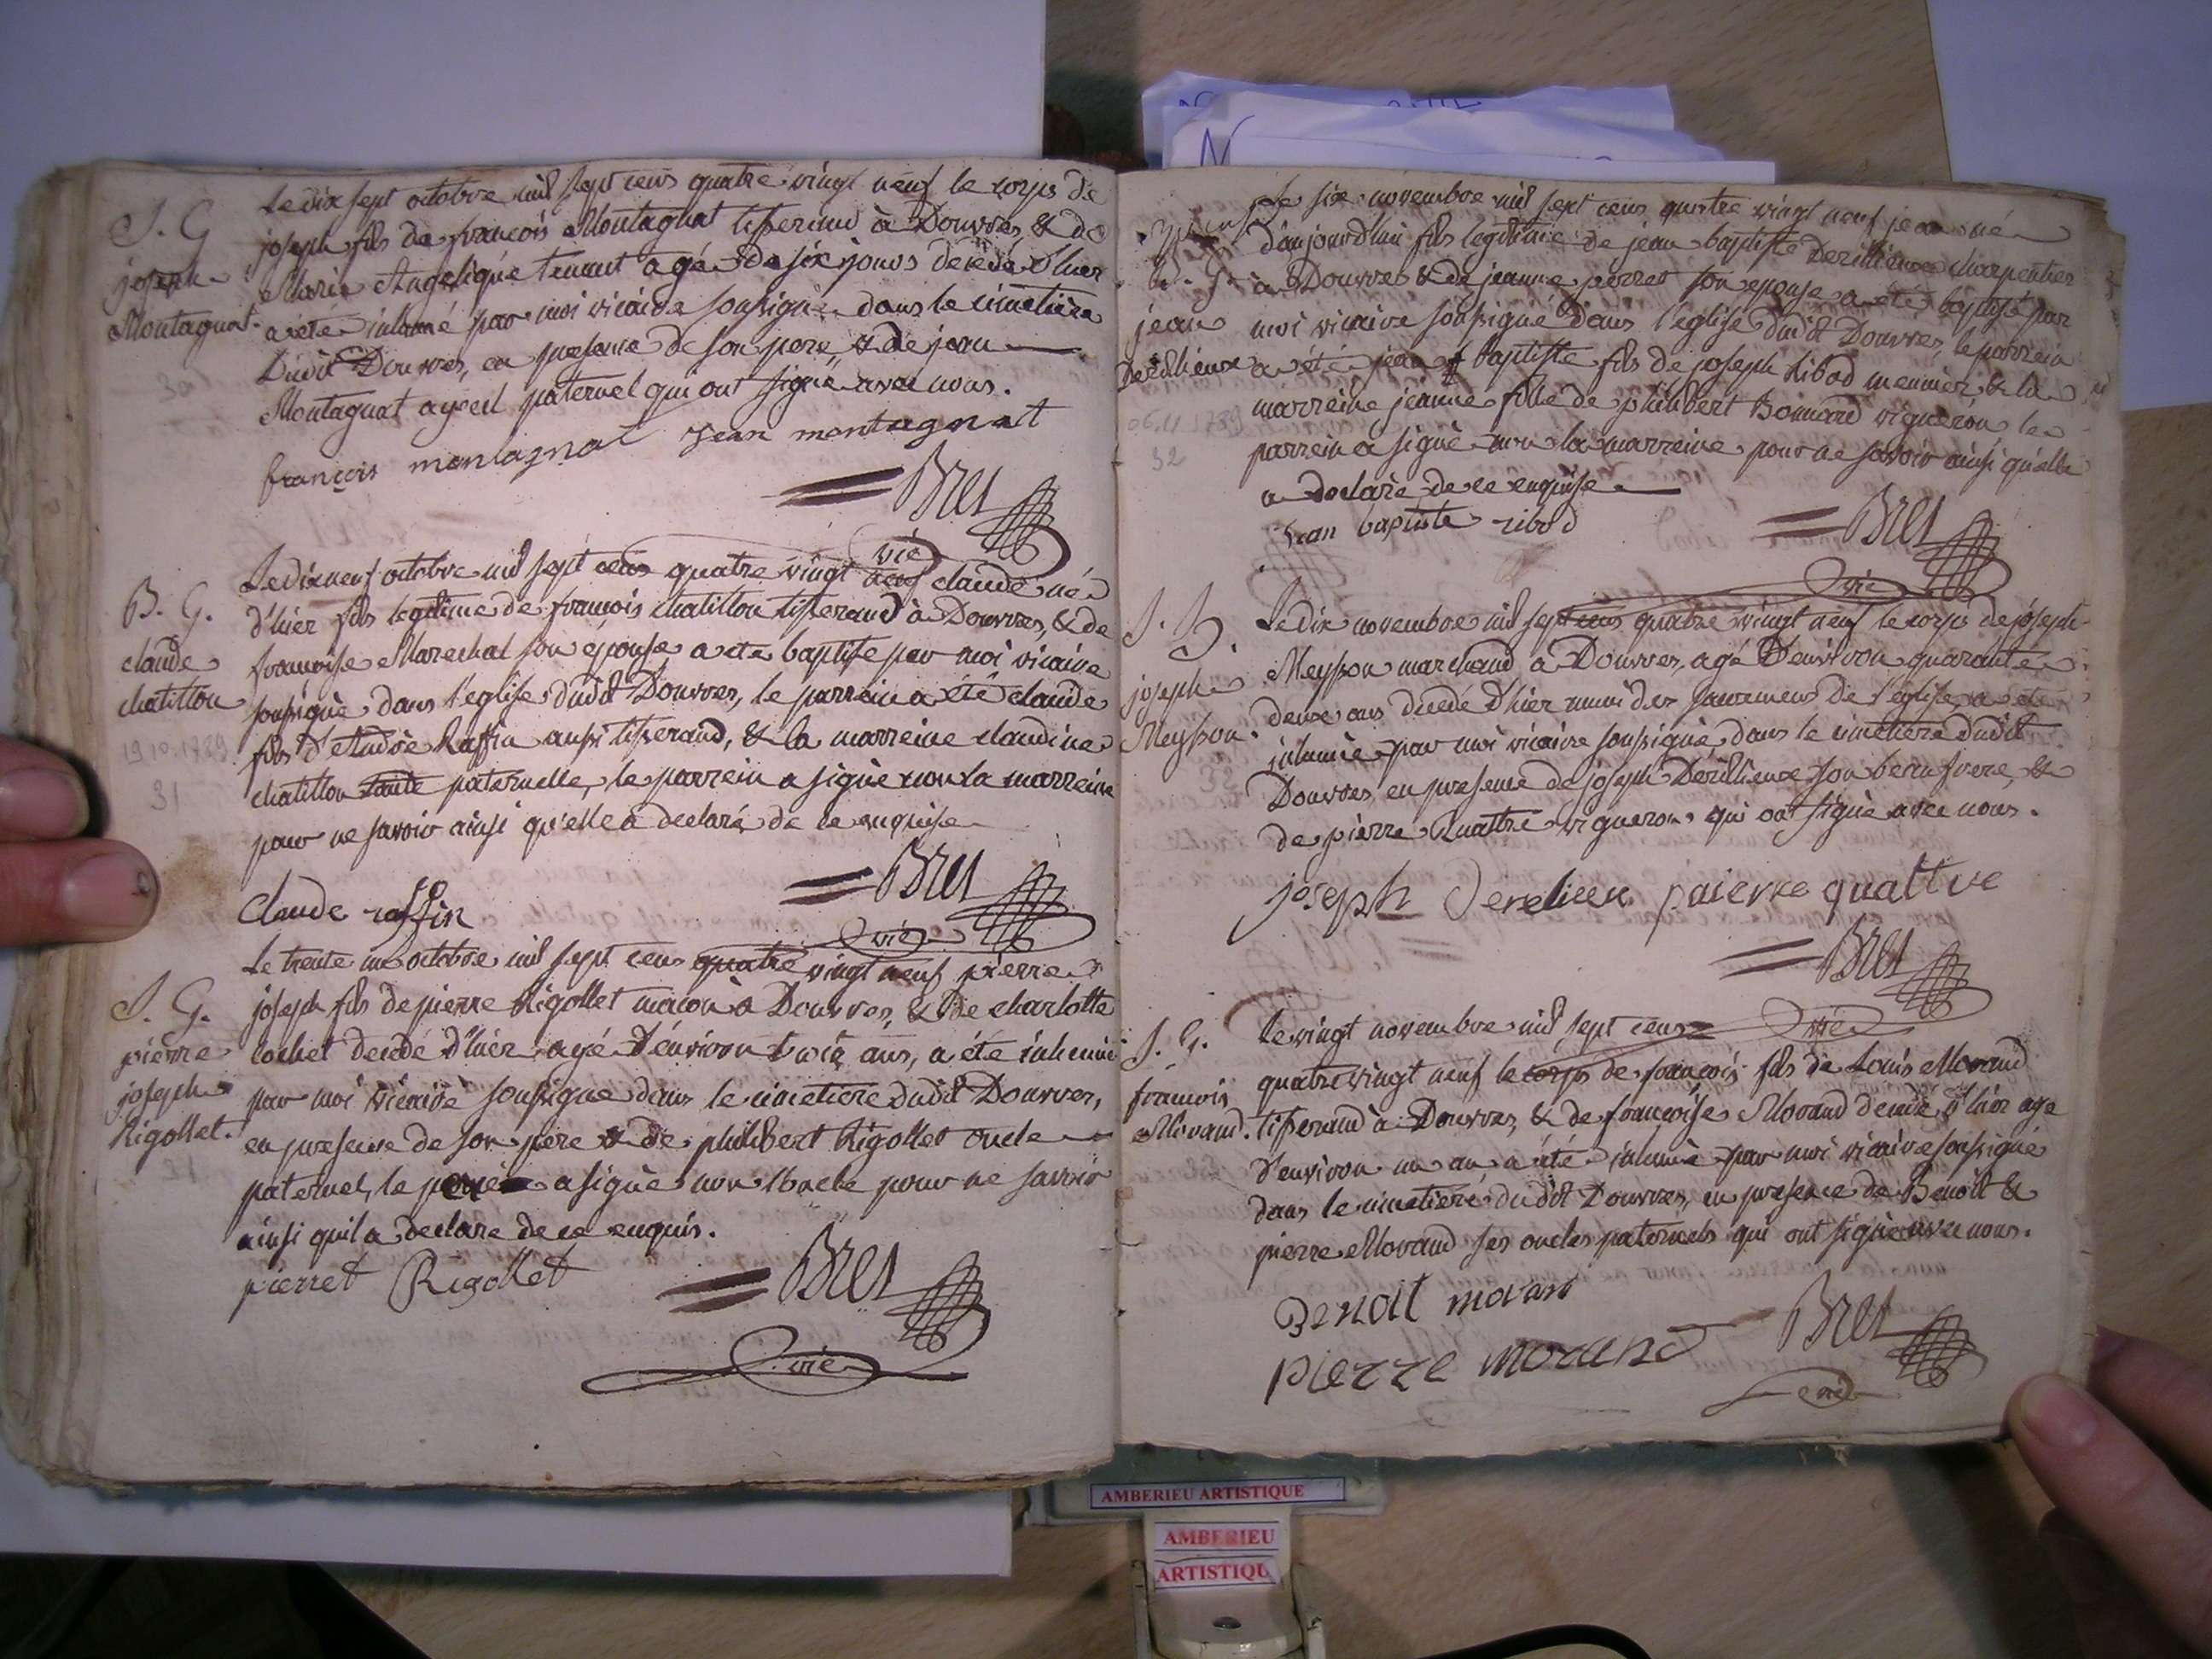 S. G
joseph
Montagnat.
Le dix sept octobre mil sept cens quatre vingt neuf le corps de
joseph fils de francois Montagnat tisserand à Douvres, & de
Marie Angelique tenant agé de six jours decedé d'hier
a été inhumé par moi vicaire soussigné dans le cimetière
dudit Douvres, en presence de son pere, & de jean
Montagnat ayeul paternel qui ont signé avec nous.
françois montagnat jean montagnat
Bret
vic
B. G.
claude
chatillon
19.10.1789
31
Le dix neuf octobre mil sept cens quatre vingt neuf claude né
d'hier fils legitime de francois chatillon tisserand à Douvres, & de
francoise Marechal son epouse a eté baptisé par moi vicaire
soussigné dans l'eglise dudit Douvres, le parrein a été claude
fils d'Andrée Raffin aussi tisserand, & la marreine claudine
chatillon tante paternelle, le parrein a signé non la marreine
pour ne savoir ainsi qu'elle a declaré de ce enquise
Claude raffin
Bret
vic
S. G.
pierre
joseph
Rigollet.
Le trente un octobre mil sept cens quatre vingt neuf pierre
joseph fils de pierre Rigollet macon à Douvres, & de charlotte
cochet decedé d'hier agé d'environ trois ans, a été inhumé
par moi vicaire soussigné dans le cimetiere dudit Douvres,
en presence de son pere & de philibert Rigollet oncle
paternel, le a signé non l'oncle pour ne savoir
ainsi qu'il a declaré de ce enquis.
pierret Rigollet
Bret
vic
B. G.
jean
Derillieux
06.11.1789
32
Le six novembre mil sept cens quatre vingt neuf jean né
d'aujourd'hui fils legitime de jean baptiste Derillieux charpentier
à Douvres & de jeanne perret son epouse a eté baptisé par
moi vicaire soussigné dans l'eglise dudit Douvres, le parrein
a été jean baptiste fils de joseph Ribod meunier, & la
marreine jeanne fille de philibert Bonnard vigneron le
parrein a signé non la marreine pour ne savoir ainsi qu'elle
a declaré de ce enquise
jean baptiste ribod
Bret
vic
joseph
Meysson.
Le dix novembre mil sept cens quatre vingt neuf le corps de joseph
Meysson marchand à Douvres, agé d'environ quarante
deux ans decedé d'hier muni des sacremens de l'église, a eté
inhumé par moi vicaire soussigné dans le cimetiere dudit
Douvres, en presence de joseph Derillieux son beau frere, &
de pierre Quattre vigneron qui ont signé avec nous.
joseph Derelieux paierre quattre
Bret
vic
S. G.
francois
Morand.
Le vingt novembre mil sept cens
quatre vingt neuf le corps de francois fils de Louis Morand
tisserand à Douvres, & de francoise Morand decedé d'hier agé
d'environ un an a été inhumé par moi vicaire soussigné
dans le cimetiere dudit Douvres, en presence de Benoit &
pierre Morand ses oncles paternels qui ont signé avec nous.
Benoit moran
pierre morand
Bret
vic
AMBERIEU ARTISTIQUE
AMBERIEU
ARTISTIQU